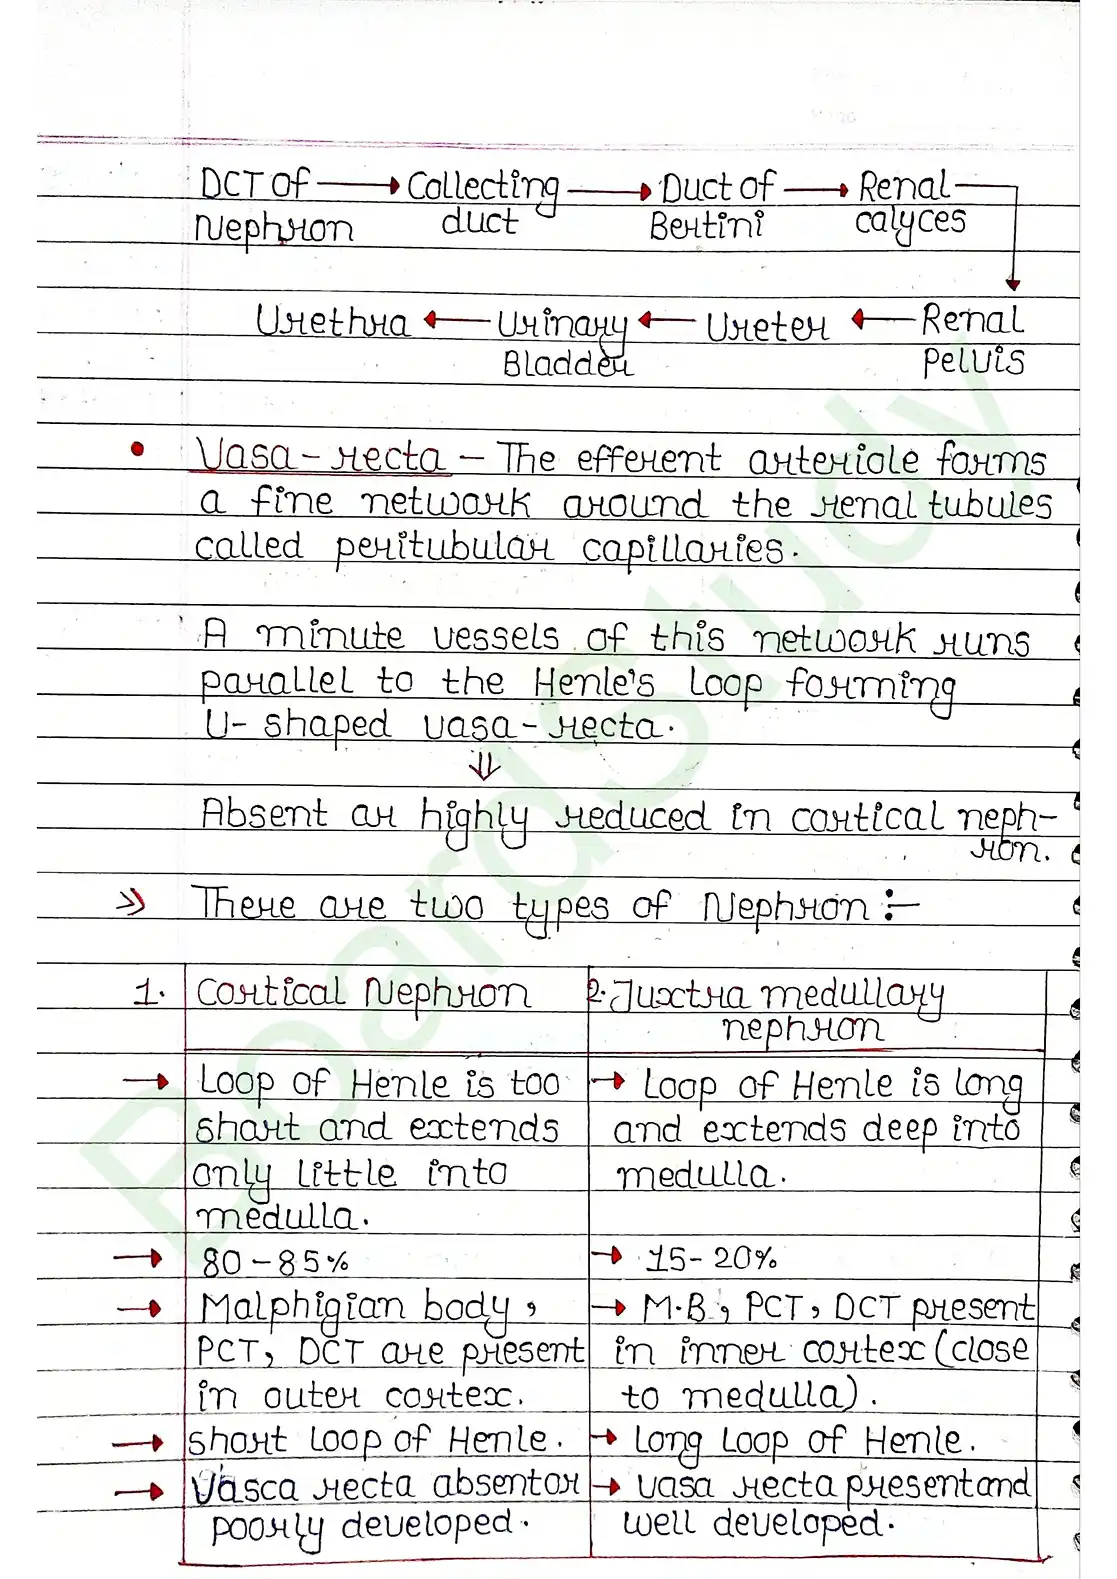 DCT of → Collecting → Duct of → Renal
Nephron duct Bertini calyces
Urethra ← Urinary ← Ureter ← Renal
Bladder Pelvis
• Vasa-recta – The efferent arteriole forms
a fine network around the renal tubules
called peritubular capillaries.
A minute vessels of this network runs
parallel to the Henle's Loop forming
U-shaped vasa-recta.
⇓
Absent or highly reduced in cortical neph-
ron.
>> There are two types of Nephron :-
1. Cortical Nephron
→ Loop of Henle is too
short and extends
only little into
medulla.
→ 80-85%
→ Malphigian body,
PCT, DCT are present
in outer cortex.
→ short Loop of Henle.
→ Vasca recta absent or
poorly developed.
2. Juxtra medullary
nephron
→ Loop of Henle is long
and extends deep into
medulla.
→ 15-20%
→ M.B., PCT, DCT present
in inner cortex (close
to medulla).
→ Long Loop of Henle.
→ vasa recta present and
well developed.
BoardStudy